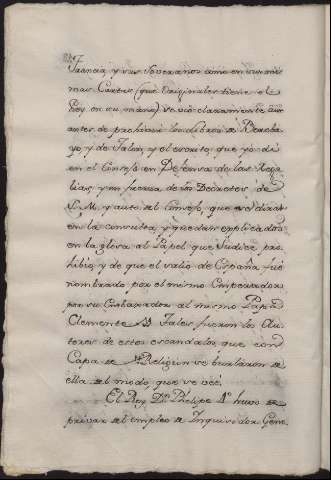 Francia, y sus Soveranos como en sus mis
mas Cartas (que Originales tiene el
Rey en su mano) se vè claramente que
antes de prohivir los libros de Barcla
yo, y de Talon, y el escrito, que yo dì
en el Consejo en Defensa de las Rega
lias, y en fuerza de los Decretos de
S.M. y auto del Consejo, que se diran
en la consulta, y quedan explicados
en la glosa al Papel que Judice pro
hibiò, y de que el salio de España, fue
nombrado por el mismo Emperador
por su Embaxador al mismo Papa
Clemente. Tales fueron los Au
tores de estos escandalos que con
Capa de Religion se burlaron de
ella del modo, que se vee.
El Rey Dn. Phelipe 4º huvo de
privar del empleo de Inquisidor Gene